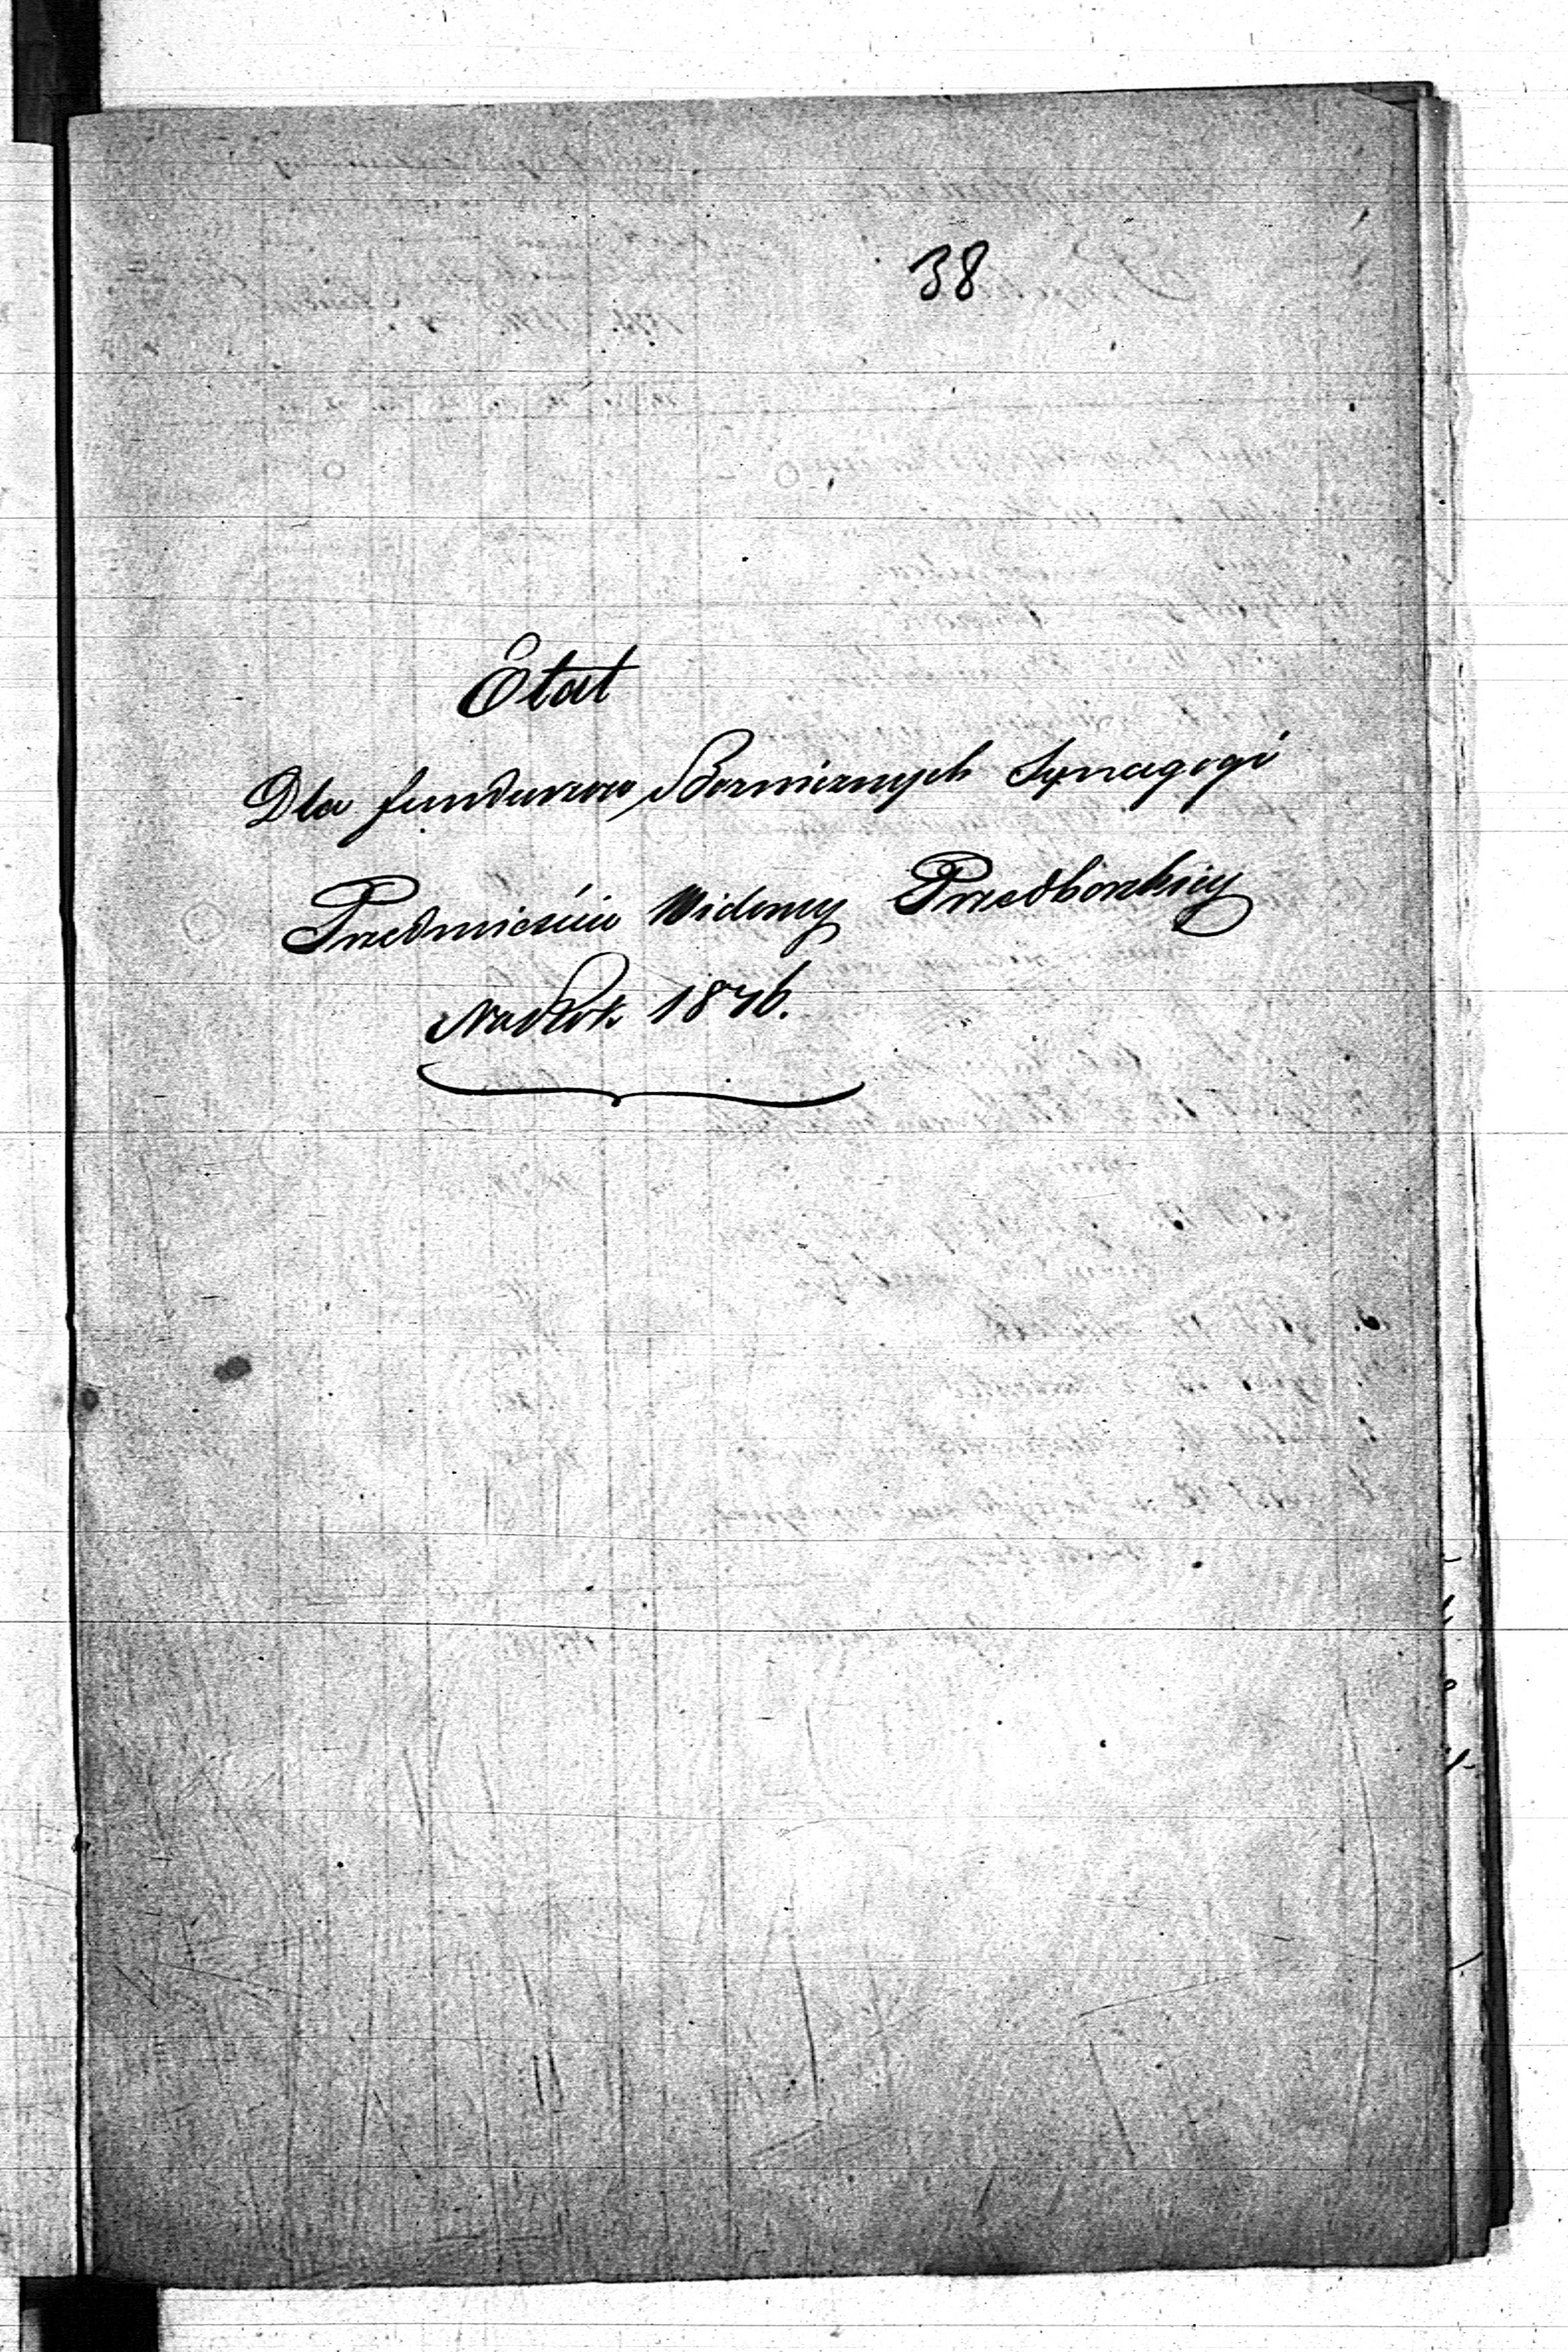 38
Etat
Dla funduszow Boznicznych Synagogi
Przedmieściu Widomy Przedborskiey
Na Rok 1846.